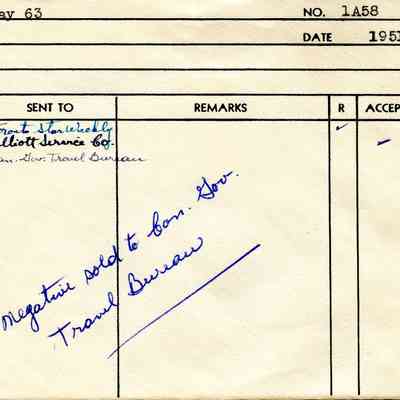 ay 63
NO. 1A58
DATE 1951
SENT TO REMARKS R ACCEP
ronto Star Weekly
lliott Service Co.
an. Gov. Travel Bureau
Negative sold to Can. Gov.
Travel Bureau